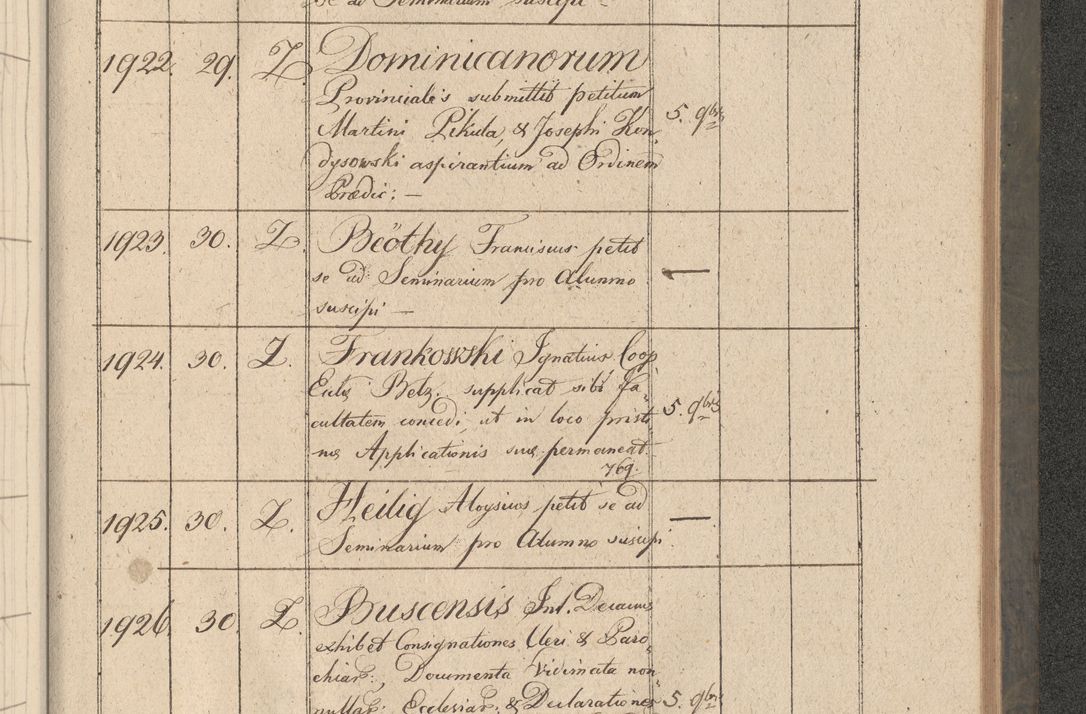 se ad Seminarium suscipi —
1922. 29. Z. Dominicanorum
Provincialis submittit petitum
Martini Pikula, & Josephi Kon„ 5. 9bris
dysowski aspirantium ad Ordinem
Prædic: —
1923. 30. Z. Beöthy Franciscus petit
se ad Seminarium pro Alumno —
suscipi —
1924. 30. Z. Frankowski Ignatius Coop
Eccles Betz. supplicat sibi fa„
cultatem concedi, ut in loco pristi„ 5. 9bris
næ Applicationis suæ permaneat.
769.
1925. 30. Z. Heilig Aloysius petit se ad —
Seminarium pro Alumno suscipi
1926. 30. Z. Buscensis Int. Decanus
exhibet Consignationes Cleri & Paro„
chiar:, Documenta Vidimata non„
nullar: Ecclesiar: & Declarationes 5. 9bris